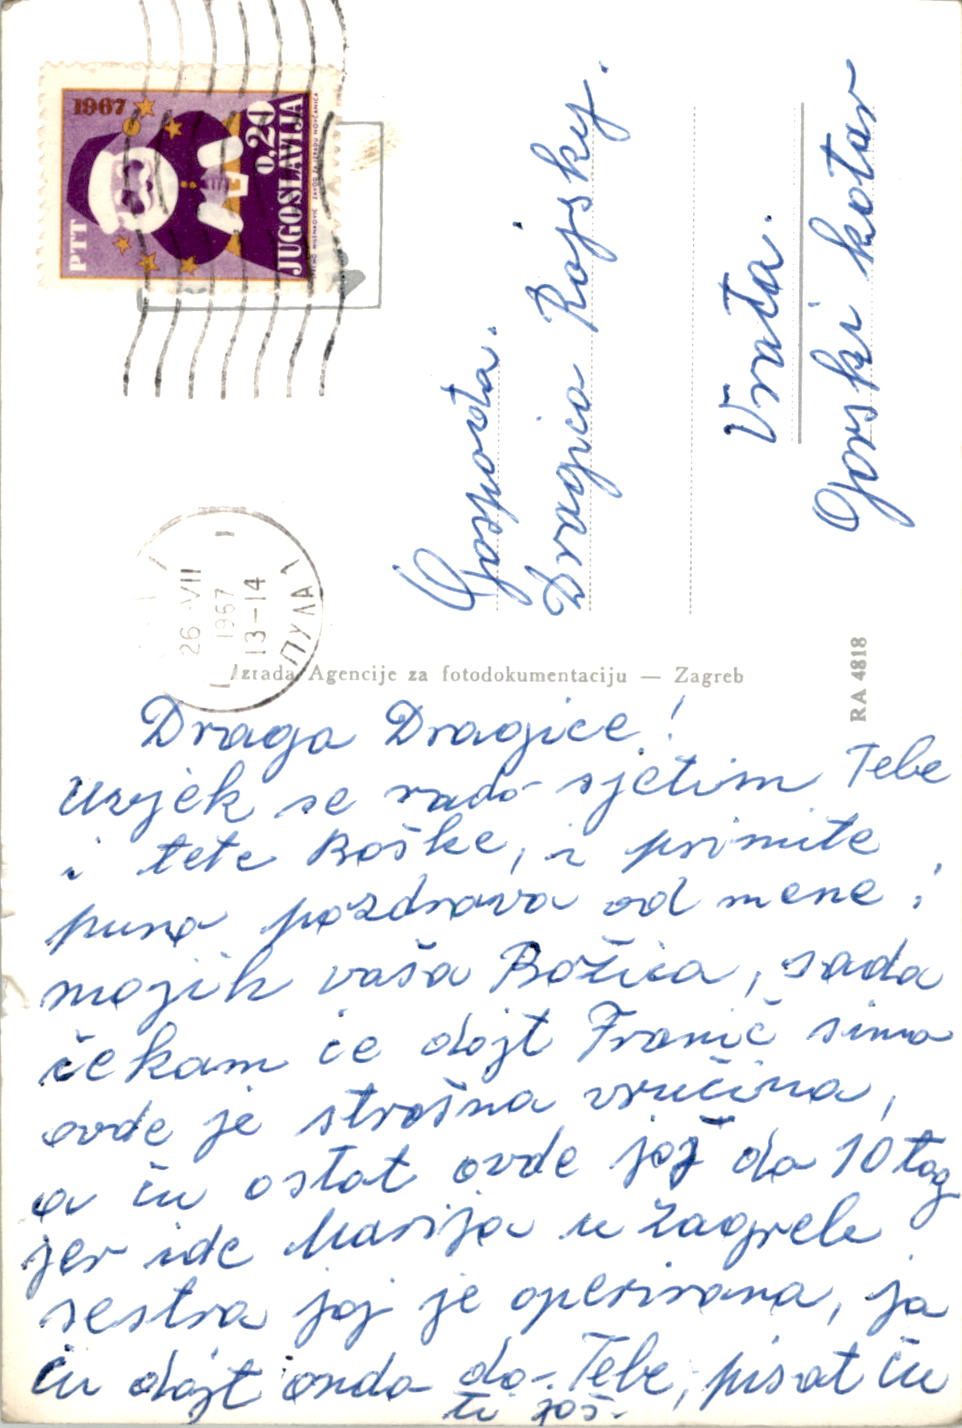 1967
PTT
0,20
JUGOSLAVIJA
26 VII
1967
13-14
ПУЛА 1
Gospođa.
Dragica Rojsky.
Vrata.
Gorski kotar
Izrada Agencije za fotodokumentaciju — Zagreb
RA 4818
Draga Dragice!
Uvjek se rado sjetim Tebe
i tete Boške, i primite
puno pozdrava od mene i
mojih vaša Božica, sada
čekam će dojt Franić simo
ovde je strašna vručina,
a ću ostat ovde još do 10tog
jer ide Marija u Zagreb
sestra joj je operirana, ja
ću dojt onda do Tebe, pisat ću
ti još.